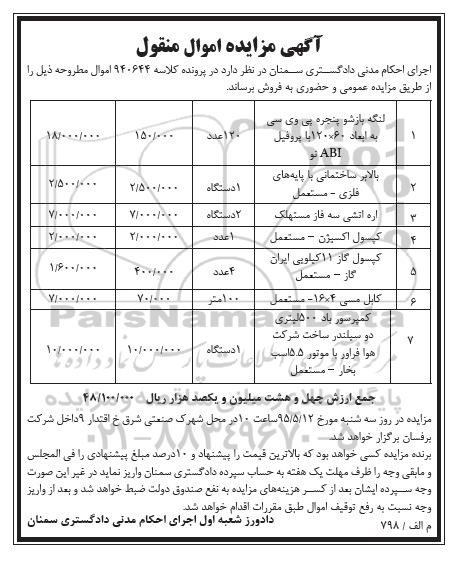 آگهی مزایده اموال منقول
اجرای احکام مدنی دادگستری سمنان در نظر دارد در پرونده کلاسه ۹۴۰۶۴۴ اموال مطروحه ذیل را
از طریق مزایده عمومی و حضوری به فروش برساند.
۱ لنگه بازشو پنجره پی وی سی ۱۲۰عدد ۱۵۰/۰۰۰ ۱۸/۰۰۰/۰۰۰
به ابعاد ۶۰×۱۲۰با پروفیل
ABI نو
۲ بالابر ساختمانی با پایه‌های ۱دستگاه ۲/۵۰۰/۰۰۰ ۲/۵۰۰/۰۰۰
فلزی - مستعمل
۳ اره اتشی سه فاز مستهلک ۲دستگاه ۷/۰۰۰/۰۰۰ ۷/۰۰۰/۰۰۰
۴ کپسول اکسیژن – مستعمل ۱عدد ۲/۰۰۰/۰۰۰ ۲/۰۰۰/۰۰۰
۵ کپسول گاز ۱۱کیلویی ایران ۴عدد ۴۰۰/۰۰۰ ۱/۶۰۰/۰۰۰
گاز – مستعمل
۶ کابل مسی ۴×۱۶- مستعمل ۱۰۰متر ۷۰/۰۰۰ ۷/۰۰۰/۰۰۰
۷ کمپرسور باد ۵۰۰لیتری ۱دستگاه ۱۰/۰۰۰/۰۰۰ ۱۰/۰۰۰/۰۰۰
دو سیلندر ساخت شرکت
هوا فراور با موتور ۵.۵اسب
بخار – مستعمل
جمع ارزش چهل و هشت میلیون و یکصد هزار ریال ۴۸/۱۰۰/۰۰۰
مزایده در روز سه شنبه مورخ ۹۵/۵/۱۲ساعت ۱۰در محل شهرک صنعتی شرق خ اقتدار ۹داخل شرکت
برفسان برگزار خواهد شد.
برنده مزایده کسی خواهد بود که بالاترین قیمت را پیشنهاد و ۱۰درصد مبلغ پیشنهادی را فی المجلس
و مابقی وجه را ظرف مهلت یک هفته به حساب سپرده دادگستری سمنان واریز نماید در غیر این صورت
وجه سپرده ایشان بعد از کسر هزینه‌های مزایده به نفع صندوق دولت ضبط خواهد شد و بعد از واریز
وجه نسبت به رفع توقیف اموال طبق مقررات اقدام خواهد شد.
دادورز شعبه اول اجرای احکام مدنی دادگستری سمنان
م الف / ۷۹۸
ParsNamadData
۰۲۱-۸۸۳۴۹۶۷۰-۵